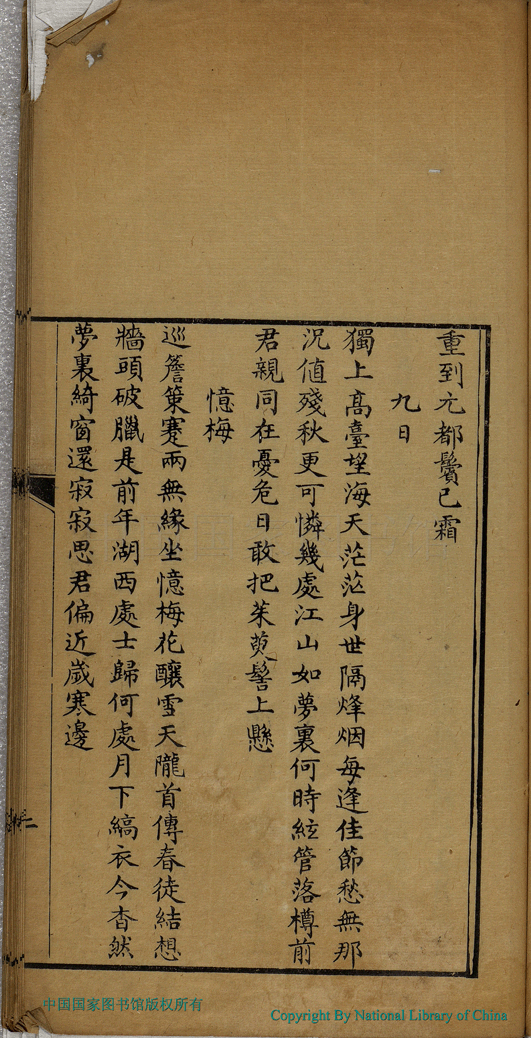 重到元都鬢已霜
九日
獨上高臺望海天茫茫身世隔烽烟每逢佳節愁無那
況値殘秋更可憐幾處江山如夢裏何時絃管落樽前
君親同在憂危日敢把茱萸髻上懸
憶梅
巡簷策蹇兩無緣坐憶梅花釀雪天隴首傳春徒結想
牆頭破臘是前年湖西處士歸何處月下縞衣今杳然
夢裏綺窗還寂寂思君偏近歲寒邊
中国国家图书馆版权所有
Copyright By National Library of China